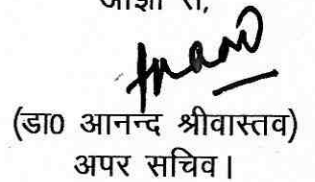 आज्ञा से,
(डा0 आनन्द श्रीवास्तव)
अपर सचिव।